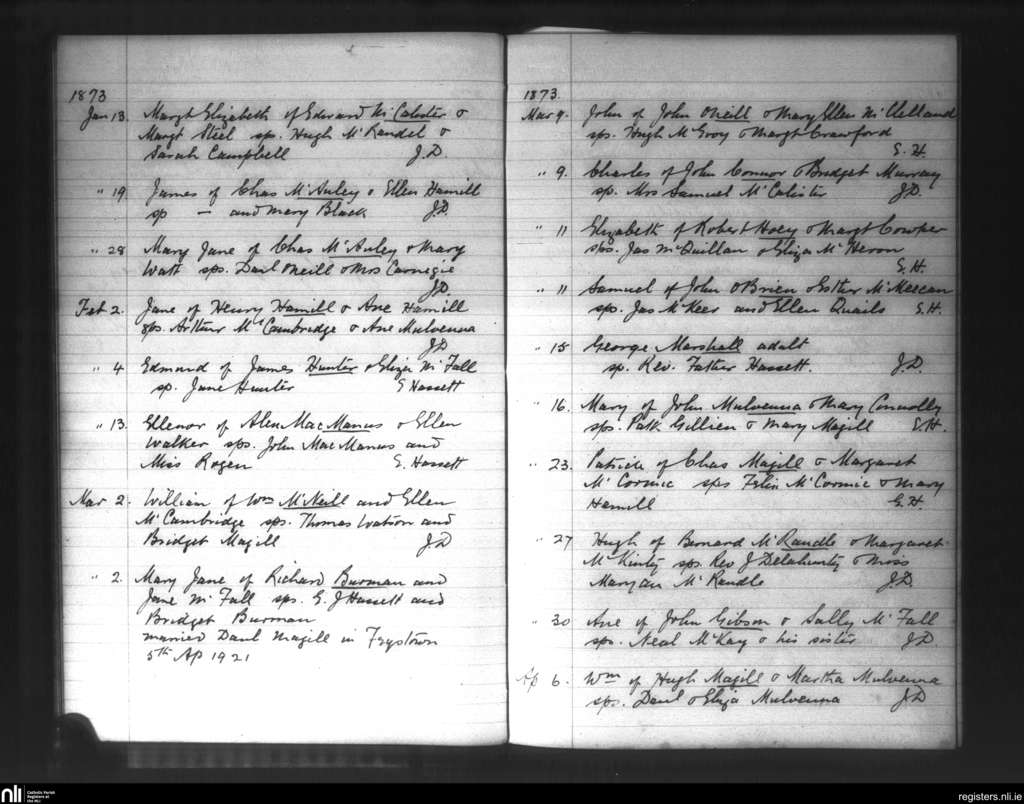 1873
Jan 13. Margt Elizabeth of Edward Mc Calister &
Margt Steel sps. Hugh McRandel &
Sarah Campbell J.D.
" 19 James of Chas McAuley & Ellen Hamill
sp — and Mary Black J.D.
" 28 Mary Jane of Chas McAuley & Mary
Watt sps. Danl Oneill & Mrs Carnegie
J.D.
Feb 2. Jane of Henry Hamill & Ane Hamill
sps. Arthur McCambridge & Ane Mulvenna
J.D
" 4 Edmund of James Hunter & Eliza Mc Fall
sp. Jane Hunter E Hassett
" 13 Ellenor of Alen MacManus & Ellen
Walker sps. John MacManus and
Miss Rogen E. Hassett
Mar 2. William of Wm McNeill and Ellen
McCambridge sps. Thomas Watson and
Bridget Magill J.D
" 2. Mary Jane of Richard Burman and
Jane Mc Fall sps. E. J Hassett and
Bridget Burman
married Danl Magill in
5th Ap 1921
1873.
Mar 9. John of John ONeill & Mary Ellen McClelland
sps. Hugh McEvoy & Margt Crawford
E.H.
" 9. Charles of John Connor & Bridget Murray
sp. Mrs Samuel McCalister J.D.
" 11 Elizabeth of Robert Hoey & Margt Cowper
sps. Jas McQuillan & Eliza McKeron
E.H.
" 11 Samuel of John OBrien & Esther McMeecan
sps. Jas McKeer and Ellen Quails E.H.
" 15 George Marshall adult
sp. Rev. Father Hassett. J.D.
" 16. Mary of John Mulvenna & Mary Connolly
sps. Patk Gillien & Mary Magill E.H.
" 23. Patrick of Chas Magill & Margaret
McCormic sps Felix McCormic & Mary
Hamill E.H.
" 27 Hugh of Bernard McRandle & Margaret
McKinty sps. Rev J Delahunty & Miss
Maryan McRandle J.D.
" 30 Ane of John Gibson & Sally McFall
sps. Neal McKay & his sister J.D
Ap 6. Wm of Hugh Magill & Martha Mulvenna
sps. Danl & Eliza Mulvenna J.D
nli
Catholic Parish
Registers at
the NLI
registers.nli.ie